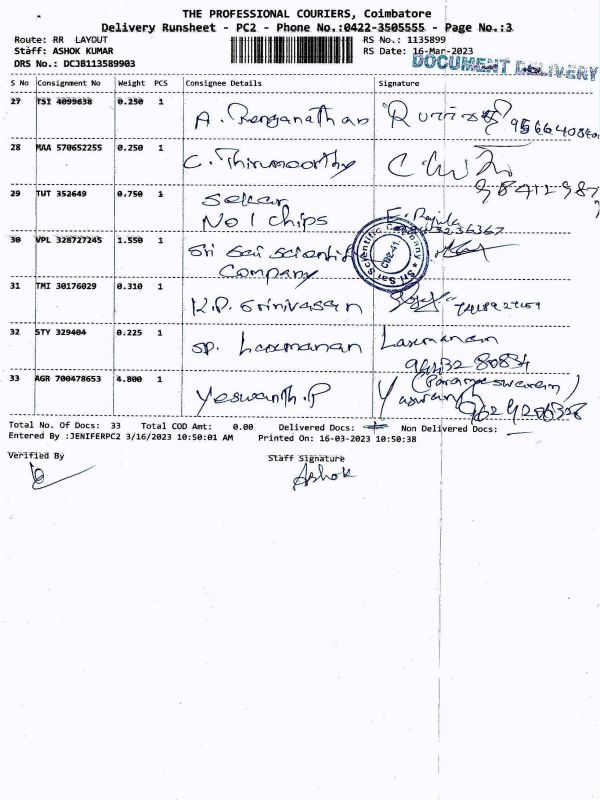 THE PROFESSIONAL COURIERS, Coimbatore
Delivery Runsheet - PC2 - Phone No.:0422-3505555 - Page No.:3
Route: RR LAYOUT RS No.: 1135899
Staff: ASHOK KUMAR RS Date: 16-Mar-2023
DOCUMENT DELIVERY
DRS No.: DCJB113589903
S No Consignment No Weight PCS Consignee Details Signature
27 TSI 4099638 0.250 1 A. Renganathan
28 MAA 570652255 0.250 1 C. Thirumoorthy
29 TUT 352649 0.750 1 Sekar E. Rajula
No 1 chips
30 VPL 328727245 1.550 1 Sri Sai Scientific
Company
Sri Sai Scientific Company CBE-41.
31 TMI 30176029 0.310 1 K.P. Srinivassan
32 STY 329404 0.225 1 SP. Laxmanan Laxmanan
9443280834
33 AGR 700478653 4.800 1 Yeswanth.P (Parameswaran)
Total No. Of Docs: 33 Total COD Amt: 0.00 Delivered Docs: Non Delivered Docs:
Entered By :JENIFERPC2 3/16/2023 10:50:01 AM Printed On: 16-03-2023 10:50:38
Verified By Staff Signature
Ashok